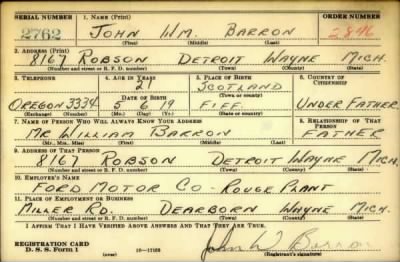 SERIAL NUMBER 1. NAME (Print) ORDER NUMBER
2762 JOHN WM. BARRON 2846
(First) (Middle) (Last)
2. ADDRESS (Print)
8167 ROBSON DETROIT WAYNE MICH.
(Number and street or R. F. D. number) (Town) (County) (State)
3. TELEPHONE 4. AGE IN YEARS 5. PLACE OF BIRTH 6. COUNTRY OF CITIZENSHIP
21 SCOTLAND
DATE OF BIRTH (Town or county)
OREGON 3334 5 6 19 FIFF. UNDER FATHER
(Exchange) (Number) (Mo.) (Day) (Yr.) (State or country)
7. NAME OF PERSON WHO WILL ALWAYS KNOW YOUR ADDRESS 8. RELATIONSHIP OF THAT PERSON
MR WILLIAM BARRON FATHER
(Mr., Mrs., Miss) (First) (Middle) (Last)
9. ADDRESS OF THAT PERSON
8167 ROBSON DETROIT WAYNE MICH.
(Number and street or R. F. D. number) (Town) (County) (State)
10. EMPLOYER'S NAME
FORD MOTOR CO - ROUGE PLANT
11. PLACE OF EMPLOYMENT OR BUSINESS
MILLER RD. DEARBORN WAYNE MICH.
(Number and street or R. F. D. number) (Town) (County) (State)
I AFFIRM THAT I HAVE VERIFIED ABOVE ANSWERS AND THAT THEY ARE TRUE.
REGISTRATION CARD John W Barron
D. S. S. Form 1 (over) (Registrant's signature)